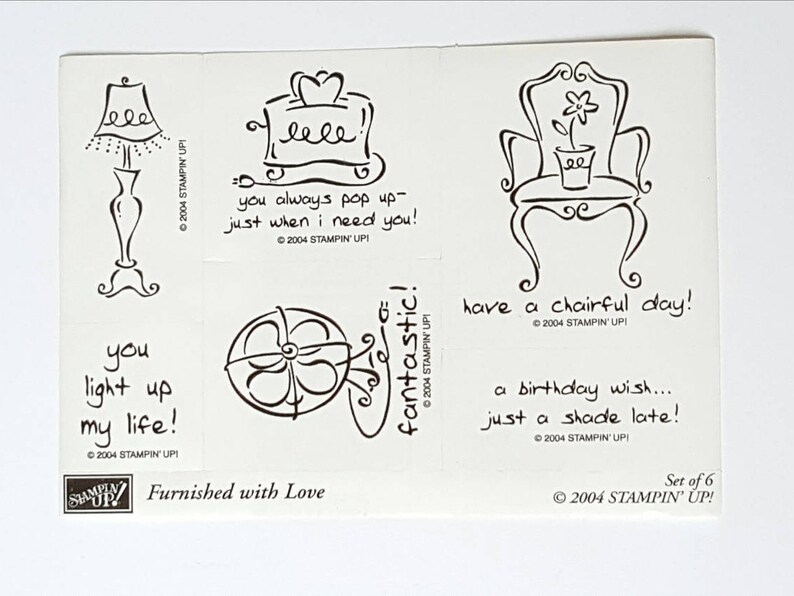 © 2004 STAMPIN' UP!
you always pop up-
just when i need you!
© 2004 STAMPIN' UP!
have a chairful day!
© 2004 STAMPIN' UP!
you
light up
my life!
© 2004 STAMPIN' UP!
fantastic!
© 2004 STAMPIN' UP!
a birthday wish...
just a shade late!
© 2004 STAMPIN' UP!
STAMPIN'
UP!
Furnished with Love
Set of 6
© 2004 STAMPIN' UP!